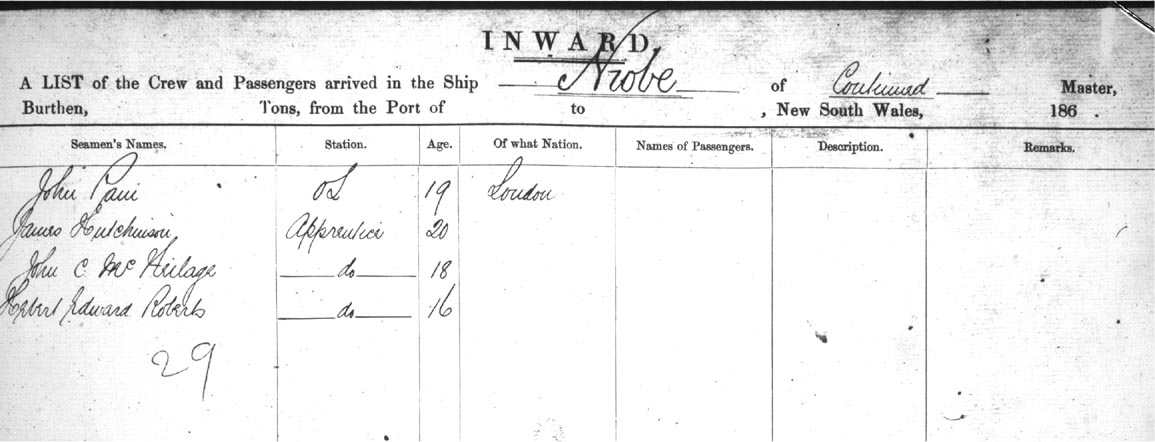 INWARD.
A LIST of the Crew and Passengers arrived in the Ship Niobe of Continued Master,
Burthen, Tons, from the Port of to , New South Wales, 186 .
Seamen's Names. Station. Age. Of what Nation. Names of Passengers. Description. Remarks.
John OS 19 London
James Hutchinson Apprentice 20
John C. Mc do 18
Herbert Edward Roberts do 16
29